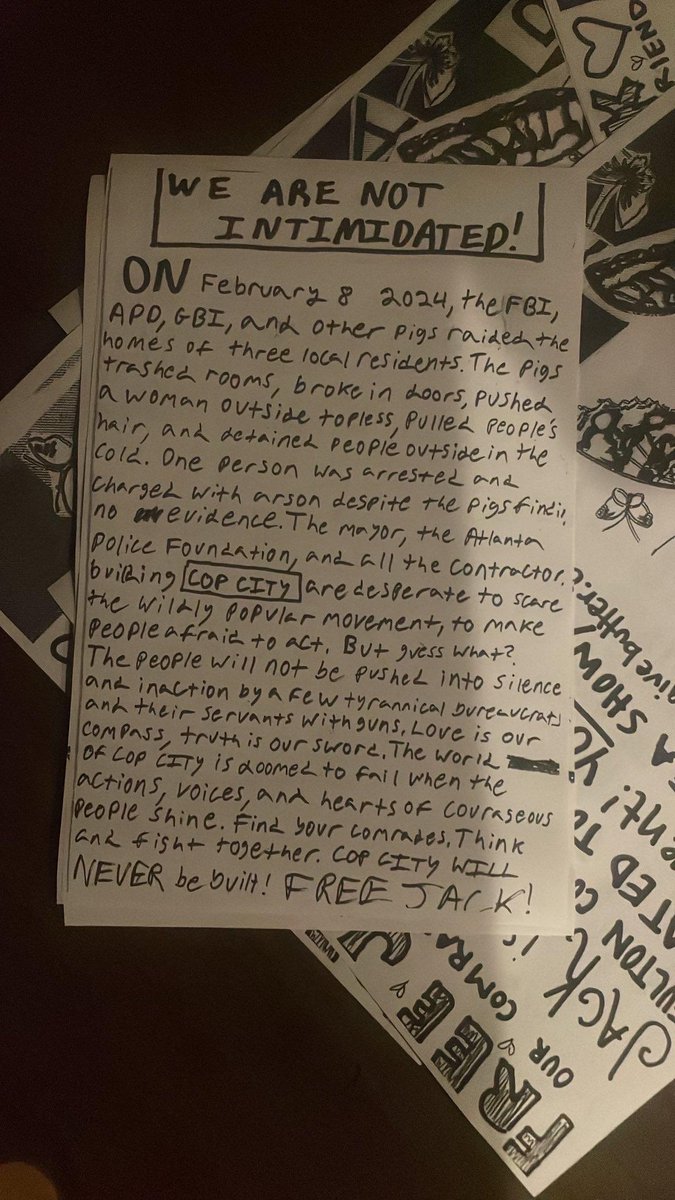 WE ARE NOT
INTIMIDATED!
ON February 8 2024, the FBI,
APD, GBI, and other pigs raided the
homes of three local residents. The pigs
trashed rooms, broke in doors, pushed
a woman outside topless, pulled people's
hair, and detained people outside in the
cold. One person was arrested and
charged with arson despite the pigs findin
no evidence. The mayor, the Atlanta
Police Foundation, and all the contractor
building COP CITY are desperate to scare
the wildly popular movement, to make
people afraid to act. But guess what?
The people will not be pushed into silence
and inaction by a few tyrannical bureaucrats
and their servants with guns. Love is our
compass, truth is our sword. The world
of COP CITY is doomed to fail when the
actions, voices, and hearts of courageous
people shine. Find your comrades. Think
and fight together. COP CITY WILL
NEVER be built! FREE JACK!
RIEND
givebutter.c
A SHOW!
ent! YO
ATED TO
FULTON CO
JACK is
OUR COMRA
FREE